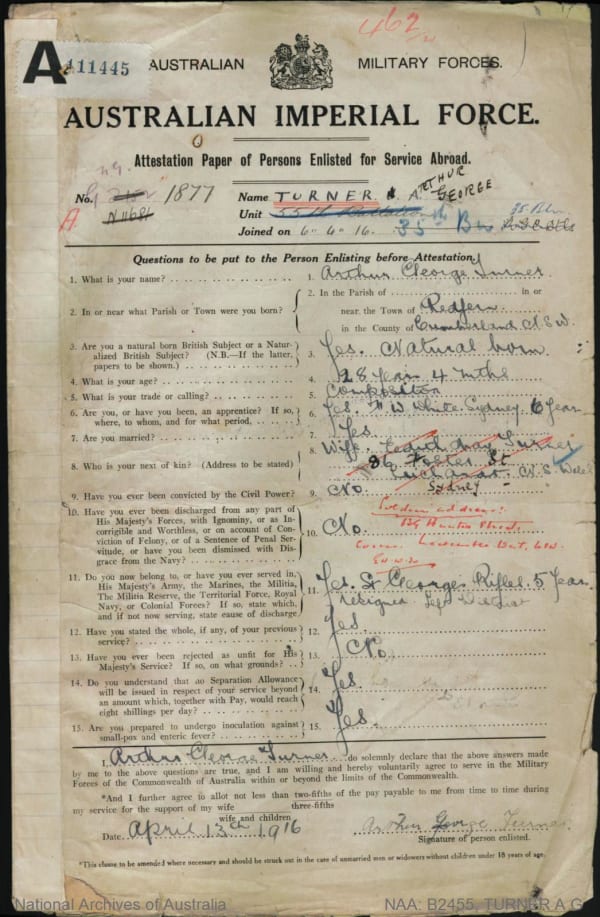 462
A
A11445
AUSTRALIAN MILITARY FORCES.
AUSTRALIAN IMPERIAL FORCE.
Attestation Paper of Persons Enlisted for Service Abroad.
No. 1877
N11681
A
Name TURNER A. ARTHUR GEORGE
Unit 55th Battalion 35 Bn
Joined on 6 4 16. 35th Bn
Questions to be put to the Person Enlisting before Attestation.
1. What is your name? 1. Arthur George Turner
2. In or near what Parish or Town were you born? 2. In the Parish of in or
near the Town of Redfern
in the County of Cumberland N.S.W.
3. Are you a natural born British Subject or a Natur-
alized British Subject? (N.B.—If the latter,
papers to be shown.) 3. Yes. Natural born
4. What is your age? 4. 28 Years 4 mths
5. What is your trade or calling? 5. Compositor
6. Are you, or have you been, an apprentice? If so,
where, to whom, and for what period. 6. Yes. W White Sydney 6 Years
7. Are you married? 7. Yes
8. Who is your next of kin? (Address to be stated) 8. Wife. May Turner
86 Foster St
Leichardt N.S. Wales
Sydney
9. Have you ever been convicted by the Civil Power? 9. No
10. Have you ever been discharged from any part of
His Majesty's Forces, with Ignominy, or as In-
corrigible and Worthless, or on account of Con-
viction of Felony, or of a Sentence of Penal Ser-
vitude, or have you been dismissed with Dis-
grace from the Navy? 10. No.
address:
Hunter Street
11. Do you now belong to, or have you ever served in,
His Majesty's Army, the Marines, the Militia,
The Militia Reserve, the Territorial Force, Royal
Navy, or Colonial Forces? If so, state which,
and if not now serving, state cause of discharge 11. Yes. St George Rifles 5 Years
resigned left District
12. Have you stated the whole, if any, of your previous
service? 12. Yes
13. Have you ever been rejected as unfit for His
Majesty's Service? If so, on what grounds? 13. No.
14. Do you understand that no Separation Allowance
will be issued in respect of your service beyond
an amount which, together with Pay, would reach
eight shillings per day? 14. Yes
15. Are you prepared to undergo inoculation against
small-pox and enteric fever? 15. Yes.
I, Arthur George Turner do solemnly declare that the above answers made
by me to the above questions are true, and I am willing and hereby voluntarily agree to serve in the Military
Forces of the Commonwealth of Australia within or beyond the limits of the Commonwealth.
*And I further agree to allot not less than two-fifths of the pay payable to me from time to time during
three-fifths
my service for the support of my wife
wife and children
Date April 13th 1916 Arthur George Turner
Signature of person enlisted.
*This clause to be amended where necessary and should be struck out in the case of unmarried men or widowers without children under 18 years of age.
National Archives of Australia NAA: B2455, TURNER A G